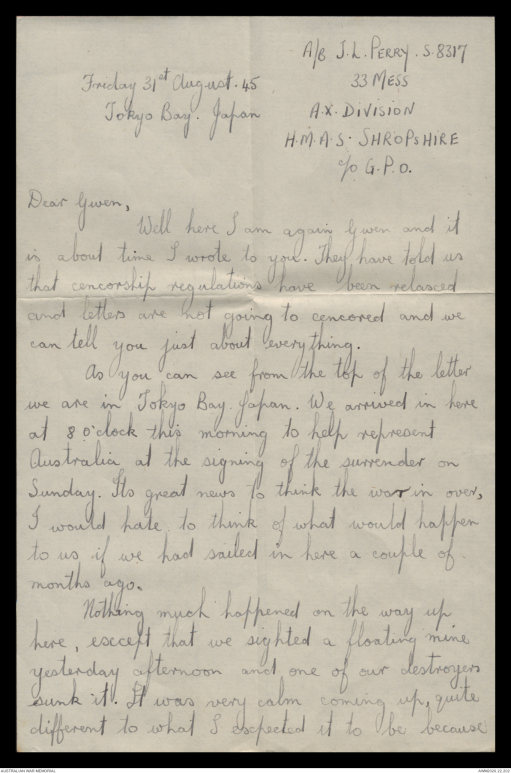 A/B J.L. PERRY. S.8317
Friday 31st August. 45
33 MESS
Tokyo Bay. Japan
A.X. DIVISION
H.M.A.S. SHROPSHIRE
c/o G.P.O.
Dear Gwen,
Well here I am again Gwen and it
is about time I wrote to you. They have told us
that cencorship regulations have been relaxced
and letters are not going to cencored and we
can tell you just about everything.
As you can see from the top of the letter
we are in Tokyo Bay. Japan. We arrived in here
at 8 o'clock this morning to help represent
Australia at the signing of the surrender on
Sunday. Its great news to think the war in over,
I would hate to think of what would happen
to us if we had sailed in here a couple of
months ago.
Nothing much happened on the way up
here, esccept that we sighted a floating mine
yesterday afternoon and one of our destroyers
sunk it. It was very calm coming up, quite
different to what I escpected it to be because
AUSTRALIAN WAR MEMORIAL